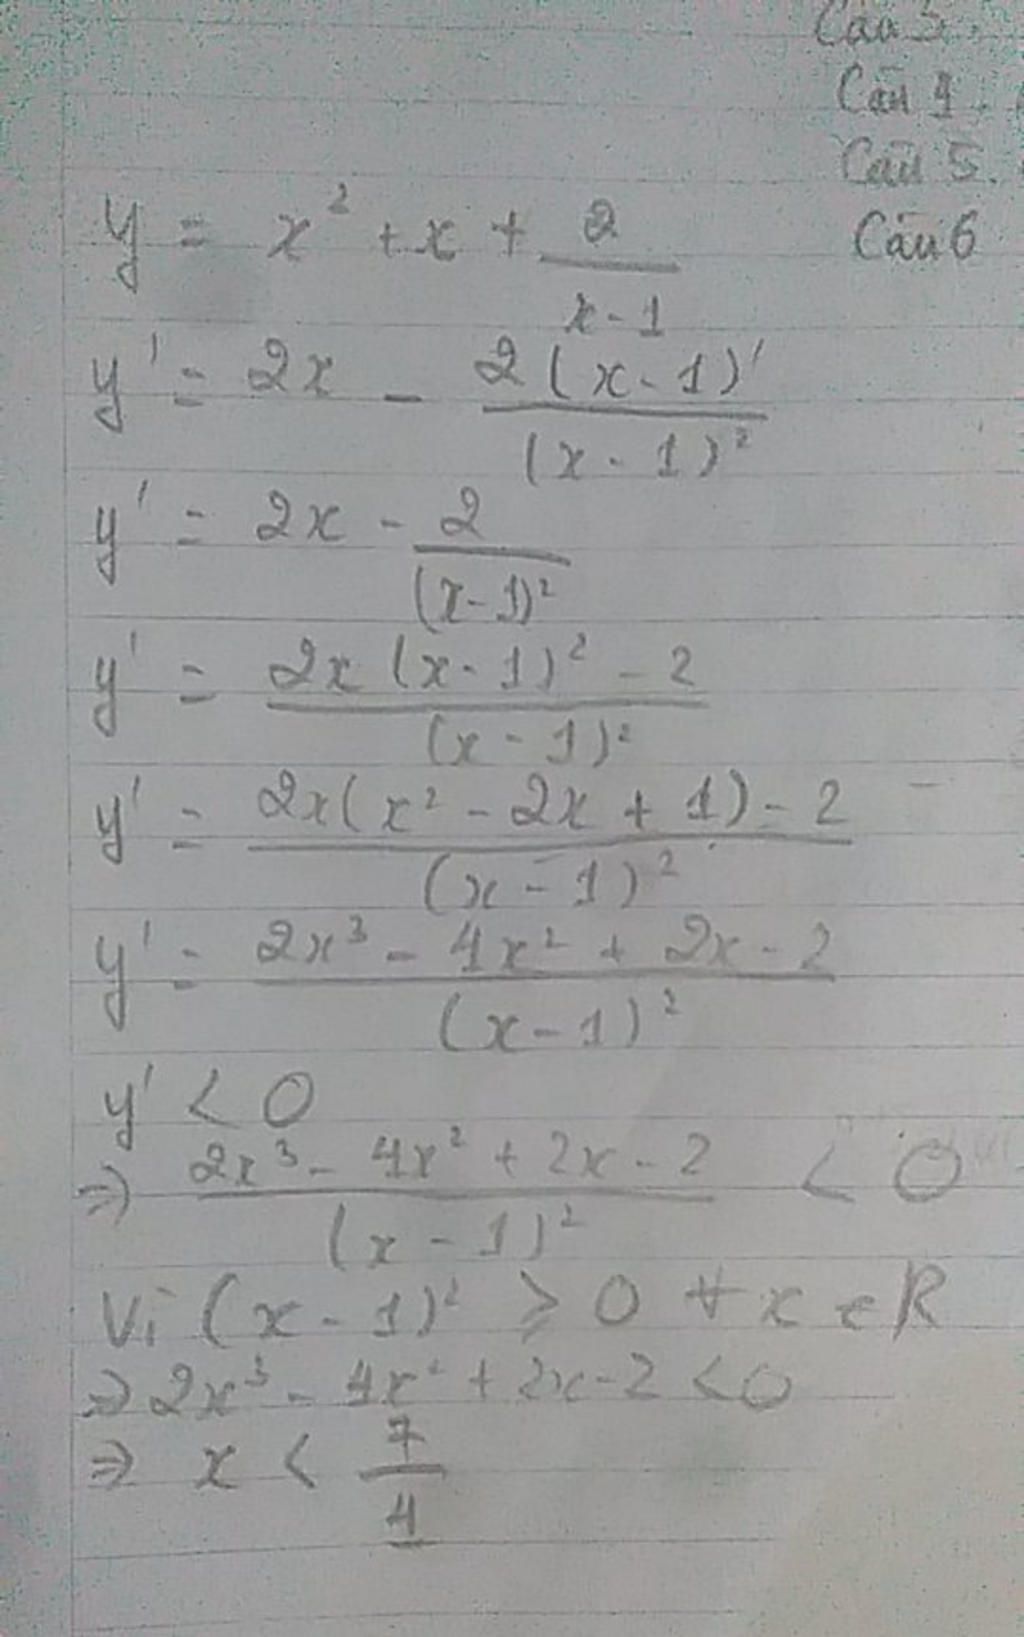 Câu 3.
Câu 4.
Câu 5.
Câu 6
y = x² + x + 2/(x-1)
y' = 2x - 2(x-1)'/(x-1)²
y' = 2x - 2/(x-1)²
y' = (2x(x-1)² - 2)/(x-1)²
y' = (2x(x² - 2x + 1) - 2)/(x-1)²
y' = (2x³ - 4x² + 2x - 2)/(x-1)²
y' < 0
=> (2x³ - 4x² + 2x - 2)/(x-1)² < 0
Vì (x-1)² ⩾ 0 ∀ x ∈ R
=> 2x³ - 4x² + 2x - 2 < 0
=> x < 7/4